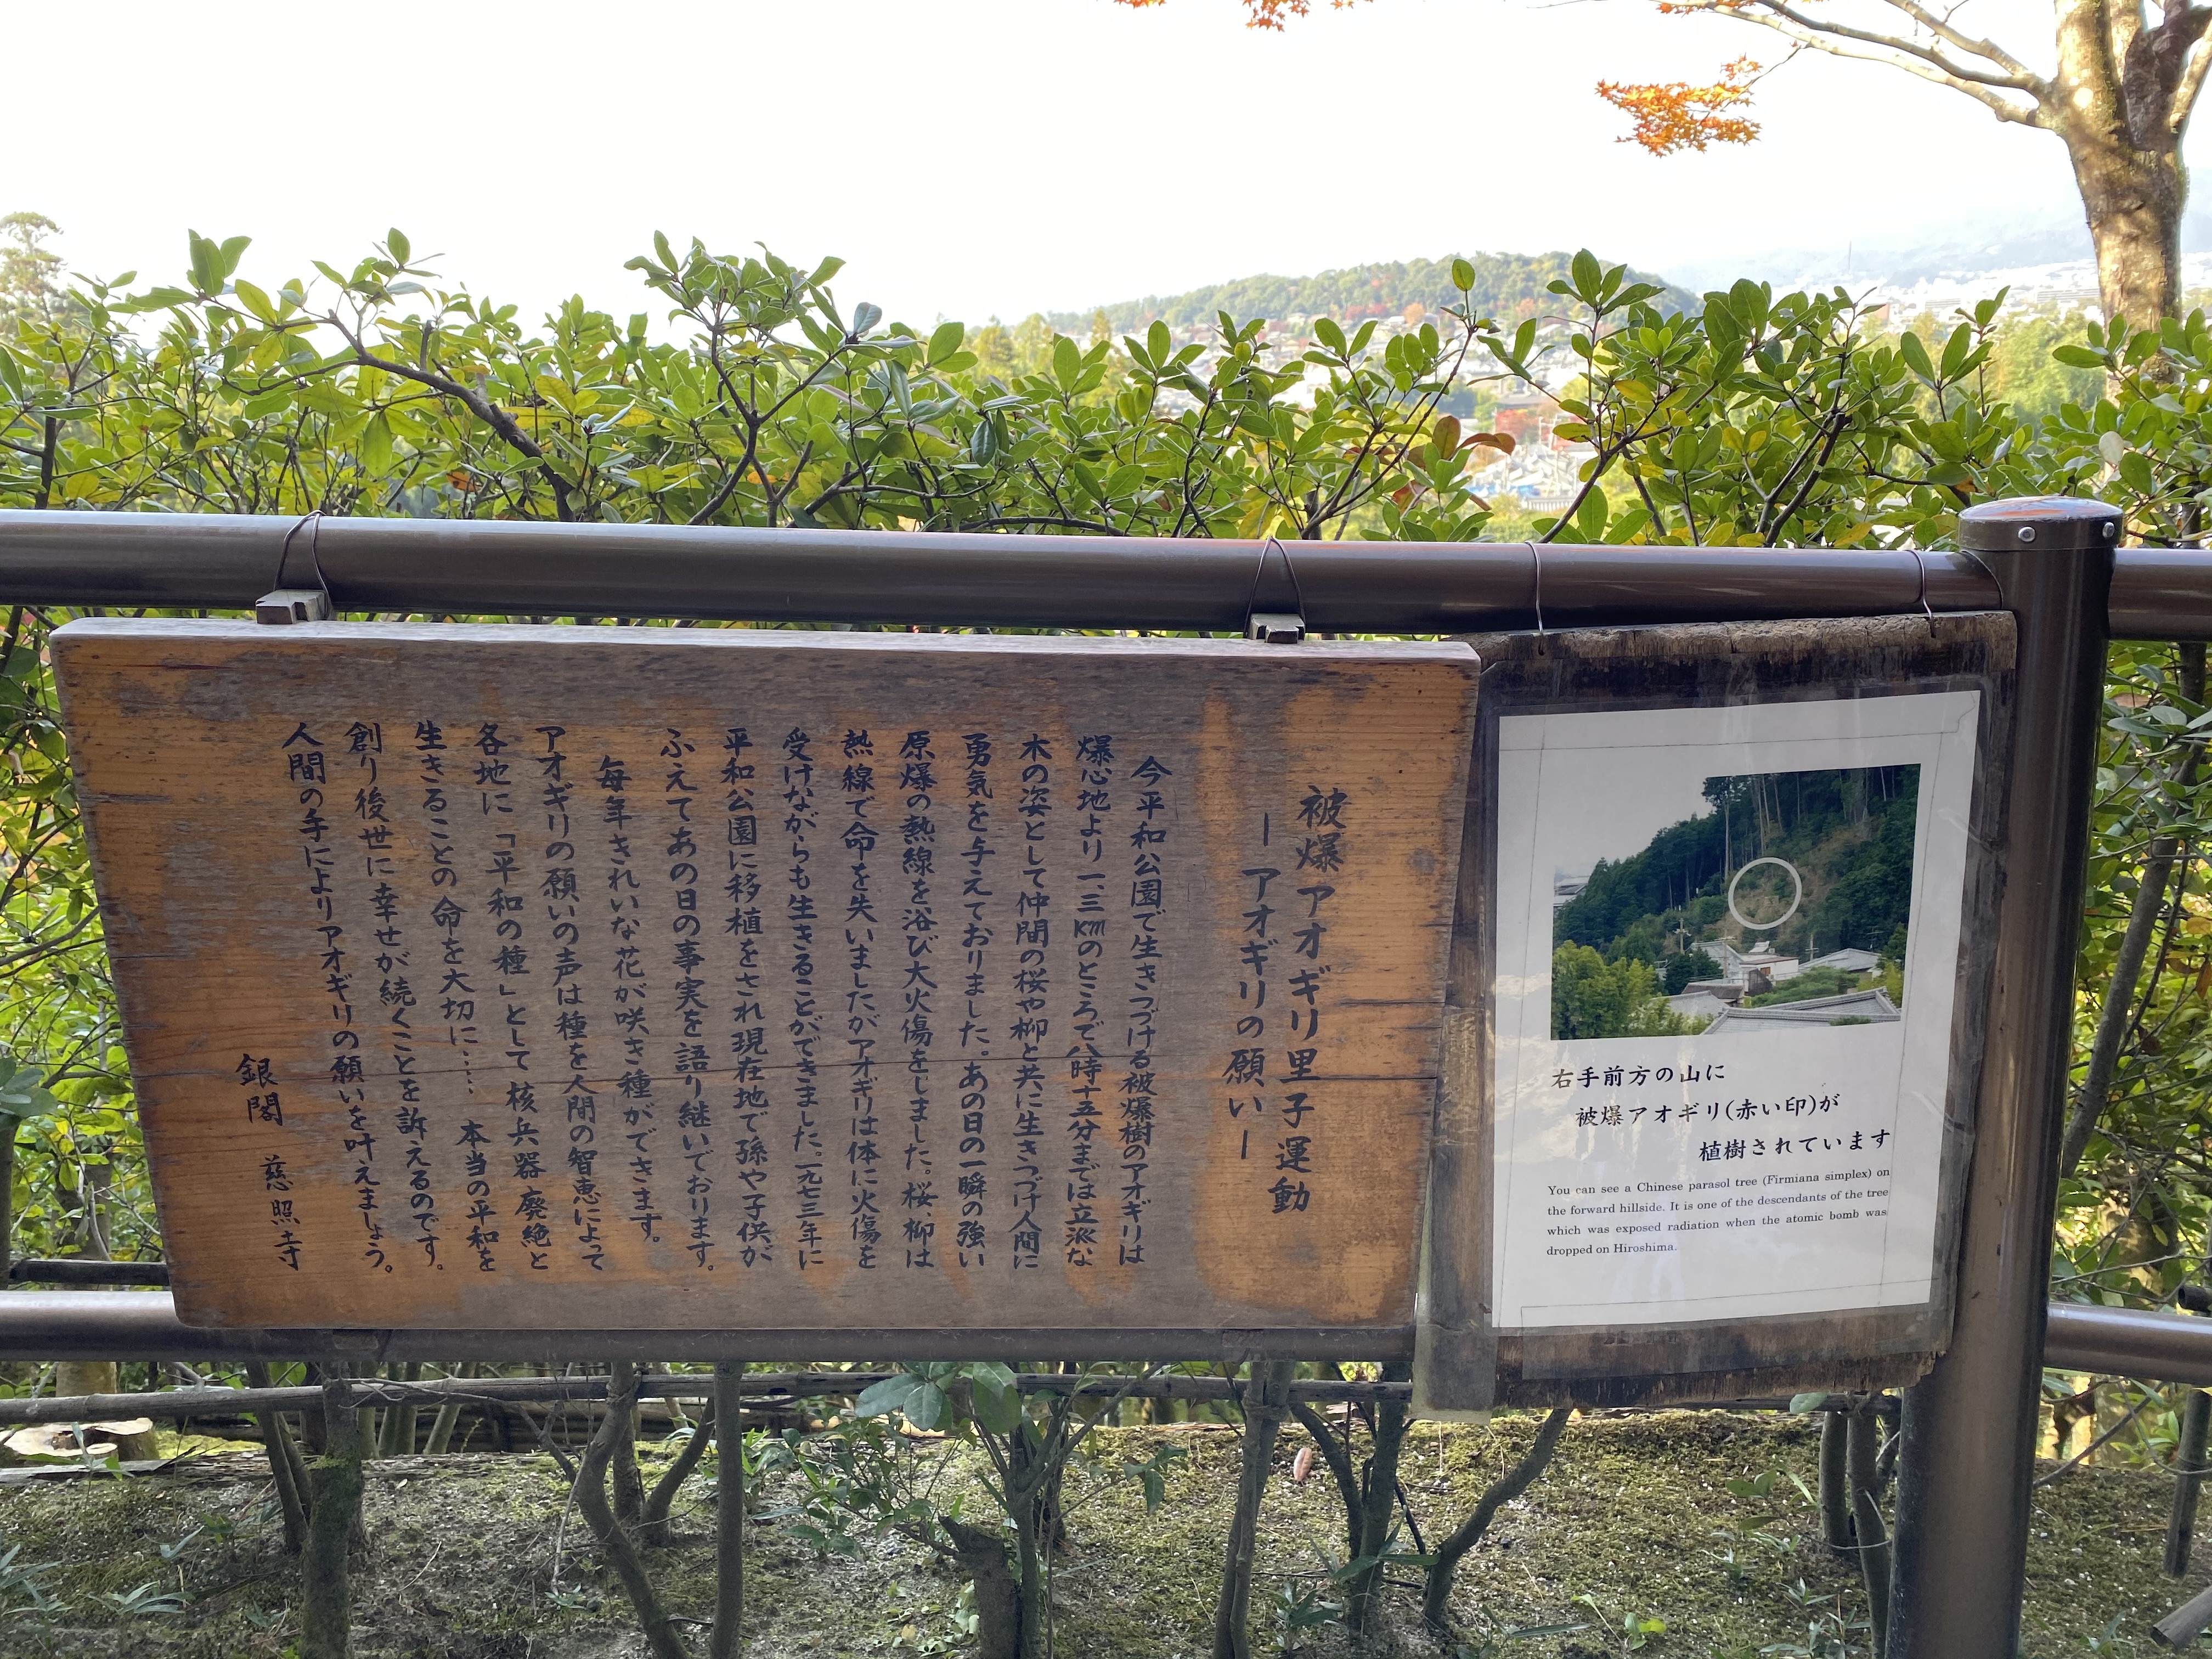 被爆アオギリ里子運動
ーアオギリの願いー
今平和公園で生きつづける被爆樹のアオギリは
爆心地より一、三kmのところで八時十五分までは立派な
木の姿として仲間の桜や柳と共に生きつづけ人間に
勇気を与えておりました。あの日の一瞬の強い
原爆の熱線を浴び大火傷をしました。桜、柳は
熱線で命を失いましたがアオギリは体に火傷を
受けながらも生きることができました。一九七三年に
平和公園に移植をされ現在地で孫や子供が
ふえてあの日の事実を語り継いでおります。
毎年きれいな花が咲き種ができます。
アオギリの願いの声は種を人間の智恵によって
各地に「平和の種」として核兵器廃絶と
生きることの命を大切に…… 本当の平和を
創り後世に幸せが続くことを訴えるのです。
人間の手によりアオギリの願いを叶えましょう。
銀閣 慈照寺
右手前方の山に
被爆アオギリ(赤い印)が
植樹されています
You can see a Chinese parasol tree (Firmiana simplex) on
the forward hillside. It is one of the descendants of the tree
which was exposed radiation when the atomic bomb was
dropped on Hiroshima.